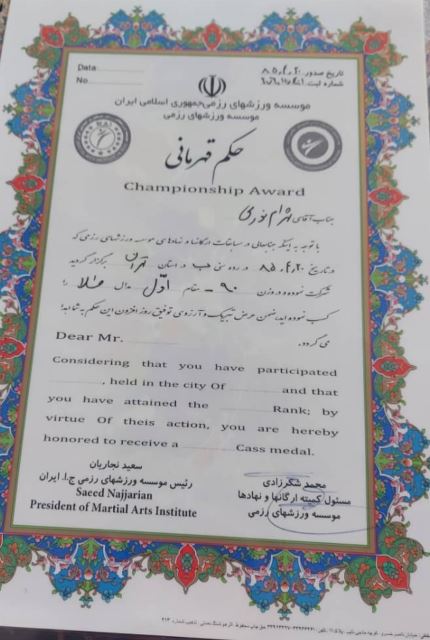 Data:
No.
تاریخ صدور: ۸۵،۴،۲۰
شماره ثبت:
موسسه ورزشهای رزمی جمهوری اسلامی ایران
موسسه ورزشهای رزمی
حکم قهرمانی
Championship Award
جناب آقای نوری
با توجه به اینکه جنابعالی در مسابقات ارگانها و نهادهای موسسه ورزشهای رزمی که
در تاریخ ۸۵،۴،۲۰ در رده سنی ب در استان تهران برگزار گردید
شرکت نموده و در وزن ۹۰- مقام اول مدال طلا را
کسب نموده اید، ضمن عرض تبریک و آرزوی توفیق روز افزون این حکم به شما اهدا
می گردد.
Dear Mr.
Considering that you have participated
, held in the city Of and that
you have attained the Rank; by
virtue Of theis action, you are hereby
honored to receive a Cass medal.
سعید نجاریان
رئیس موسسه ورزشهای رزمی ج.ا. ایران
Saeed Najjarian
President of Martial Arts Institute
محمد شکرزادی
مسئول کمیته ارگانها و نهادها
موسسه ورزشهای رزمی